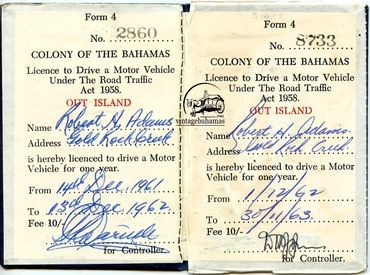 Form 4
No. 2860
COLONY OF THE BAHAMAS
Licence to Drive a Motor Vehicle
Under The Road Traffic
Act 1958.
OUT ISLAND
Name Robert H. Adams
Address Gold Rock Creek
is hereby licenced to drive a Motor
Vehicle for one year.
From 14th Dec 1961
To 13th Dec 1962
Fee 10/-
for Controller.
vintagebahamas
Form 4
No. 8733
COLONY OF THE BAHAMAS
Licence to Drive a Motor Vehicle
Under The Road Traffic
Act 1958.
OUT ISLAND
Name Robert H. Adams
Address Gold Rock Creek
is hereby licenced to drive a Motor
Vehicle for one year.
From 1/12/62
To 30/11/63.
Fee 10/-
for Controller.